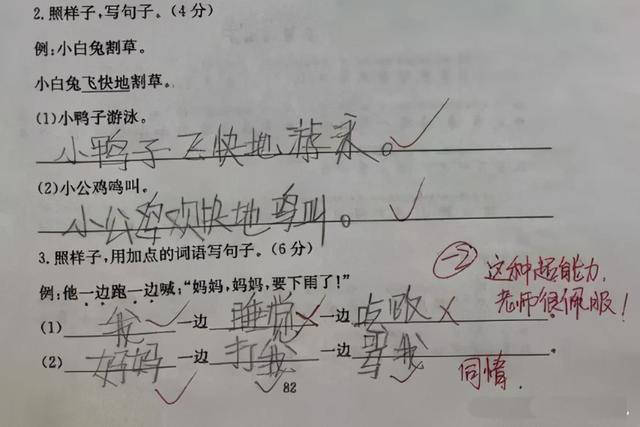 2.照样子,写句子。(4分)
例:小白兔割草。
小白兔飞快地割草。
(1)小鸭子游泳。
小鸭子飞快地游泳。
(2)小公鸡鸣叫。
小公鸡欢快地鸣叫。
3.照样子,用加点的词语写句子。(6分)
例:他一边跑一边喊:“妈妈,妈妈,要下雨了!”
(1)我一边睡觉一边吃饭。
(2)妈妈一边打我一边骂我。
-2 这种超能力,
老师很佩服!
同情.
82